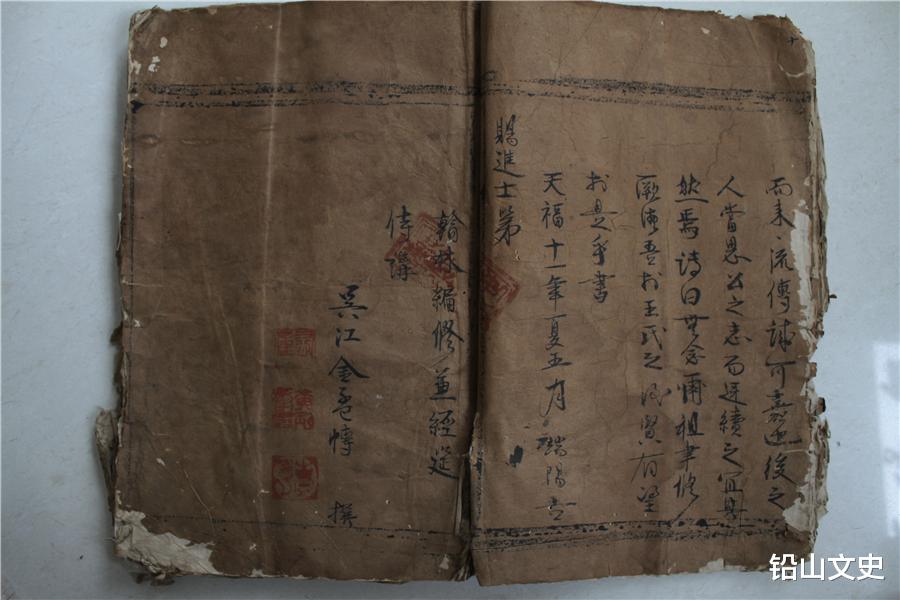 而来流傳誠可嘉迨後之
人當思公之志而廷續之宜
然焉詩曰無念爾祖聿修
厥德吾於王氏之後賢有望
於是乎書
天福十一年夏五月端陽
賜進士第
翰林編修兼經筵
侍講
吳江金 撰
铅山文史